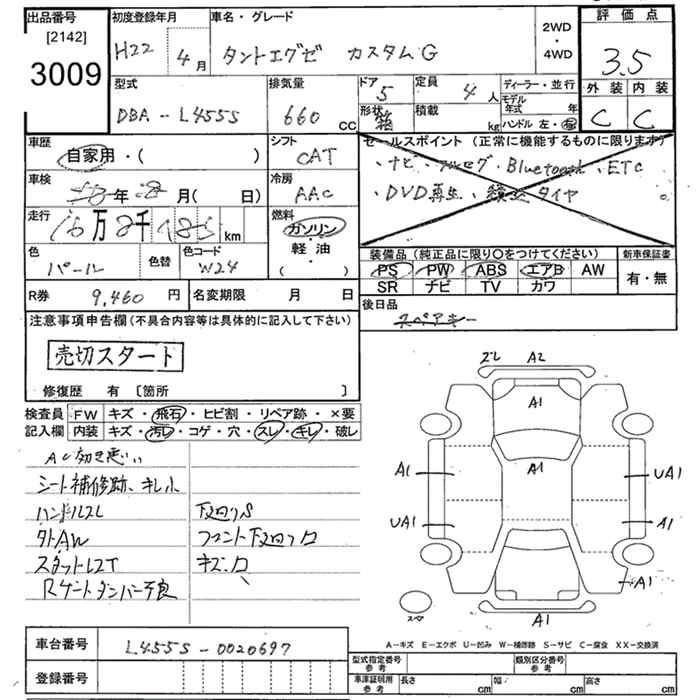 出品番号
[2142]
3009
初度登録年月
H22 4月
車名・グレード
タントエグゼ カスタムG
2WD
・
4WD
評価点
3.5
外装 内装
C C
型式
DBA-L455S
排気量
660 CC
ドア
5
定員
4人
形状
箱
積載
kg
ディーラー・並行
モデル年式 年
ハンドル 左・右
車歴
自家用・( )
シフト
CAT
セールスポイント(正常に機能するものに限ります)
・ナビ・フルセグ・Bluetooth・ETC
・DVD再生・積込タイヤ
車検
年 月(日)
冷房
AAC
走行
16万8千185 km
燃料
ガソリン
・
軽油
・
( )
色
パール
色替
色コード
W24
装備品(純正品に限り○をつけてください)
PS PW ABS エアB AW
SR ナビ TV カワ
新車保証書
有・無
R券 9,460 円
名変期限 月 日
後日品
スペアキー
注意事項申告欄(不具合内容等は具体的に記入して下さい)
売切スタート
修復歴 有 [箇所 ]
検査員記入欄
FW キズ・飛石・ヒビ割・リペア跡・×要
内装 キズ・汚レ・コゲ・穴・スレ・キレ・破レ
AC効き悪い
シート補修跡、キレ小
ハンドルスレ
下廻りS
タトAW
フロント下廻り口
スタットレスT
キズ・口
Rゲートダンパー不良
22 A2
A1
A1
A1
UA1
UA1
A1
A1
スペア
A1
A-キズ E-エクボ U-凹み W-補修跡 S-サビ C-腐食 XX-交換済
車台番号 L455S-0020697
登録番号
型式指定番号 参考
類別区分番号 参考
車庫証明用 参考
長さ cm
幅 cm
高さ cm